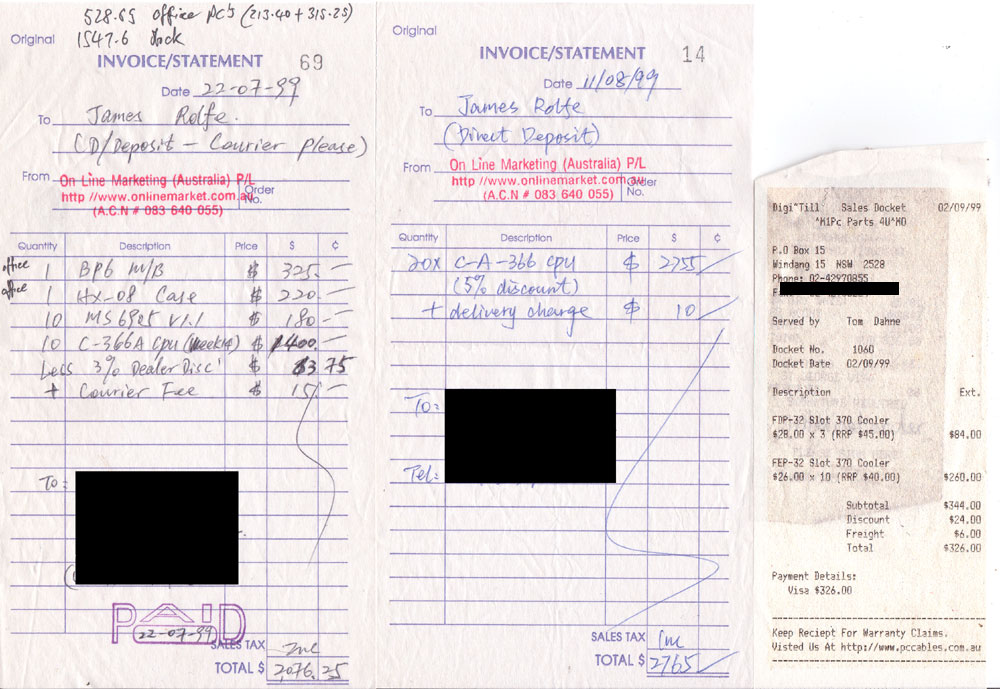 528.65 office PC's (213.40 + 315.25)
Original 1547.6 Jack
INVOICE/STATEMENT 69
Date 22-07-99
To James Rolfe.
(CD/Deposit - Courier Please)
From On Line Marketing (Australia) P/L
http://www.onlinemarket.com.au Order No.
(A.C.N # 083 640 055)
Quantity Description Price $ ¢
office 1 BP6 M/B $ 325. —
office 1 Hx-08 Case $ 220. —
10 MS6905 V1.1 $ 180 —
10 C-366A Cpu (week14) $ 1400. —
Less 3% Dealer Disc' $ 63 75
+ Courier Fee $ 15. —
To:
PAID
22-07-99
SALES TAX Inc
TOTAL $ 2,076.25
Original
INVOICE/STATEMENT 14
Date 11/08/99
To James Rolfe
(Direct Deposit)
From On Line Marketing (Australia) P/L
http://www.onlinemarket.com.au Order No.
(A.C.N # 083 640 055)
Quantity Description Price $ ¢
20x C-A-366 cpu $ 2755
(5% discount)
+ delivery charge $ 10
To:
Tel:
SALES TAX Inc
TOTAL $ 2765
Digi^Till Sales Docket 02/09/99
^M1Pc Parts 4U^M0
P.O Box 15
Windang 15 NSW 2528
Phone: 02-42970855
Served by Tom Dahne
Docket No. 1060
Docket Date 02/09/99
Description Ext.
FDP-32 Slot 370 Cooler
$28.00 x 3 (RRP $45.00) $84.00
FEP-32 Slot 370 Cooler
$26.00 x 10 (RRP $40.00) $260.00
Subtotal $344.00
Discount $24.00
Freight $6.00
Total $326.00
Payment Details:
Visa $326.00
Keep Reciept For Warranty Claims.
Visted Us At http://www.pccables.com.au